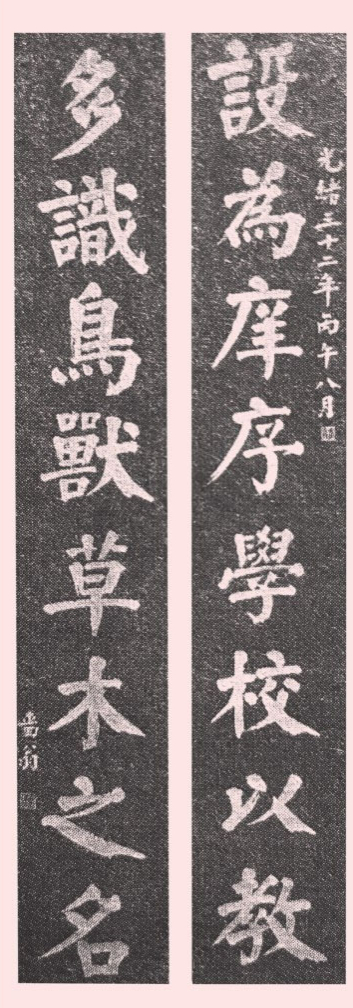 光緒三十二年丙午八月
設為庠序學校以教
多識鳥獸草木之名
嗇翁